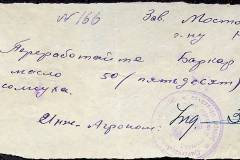 №166
Зав. Мосто
г-ну
Переработайте Баркар
масло 50 (пятьдесят)
Инж-Агроном:
Ing.